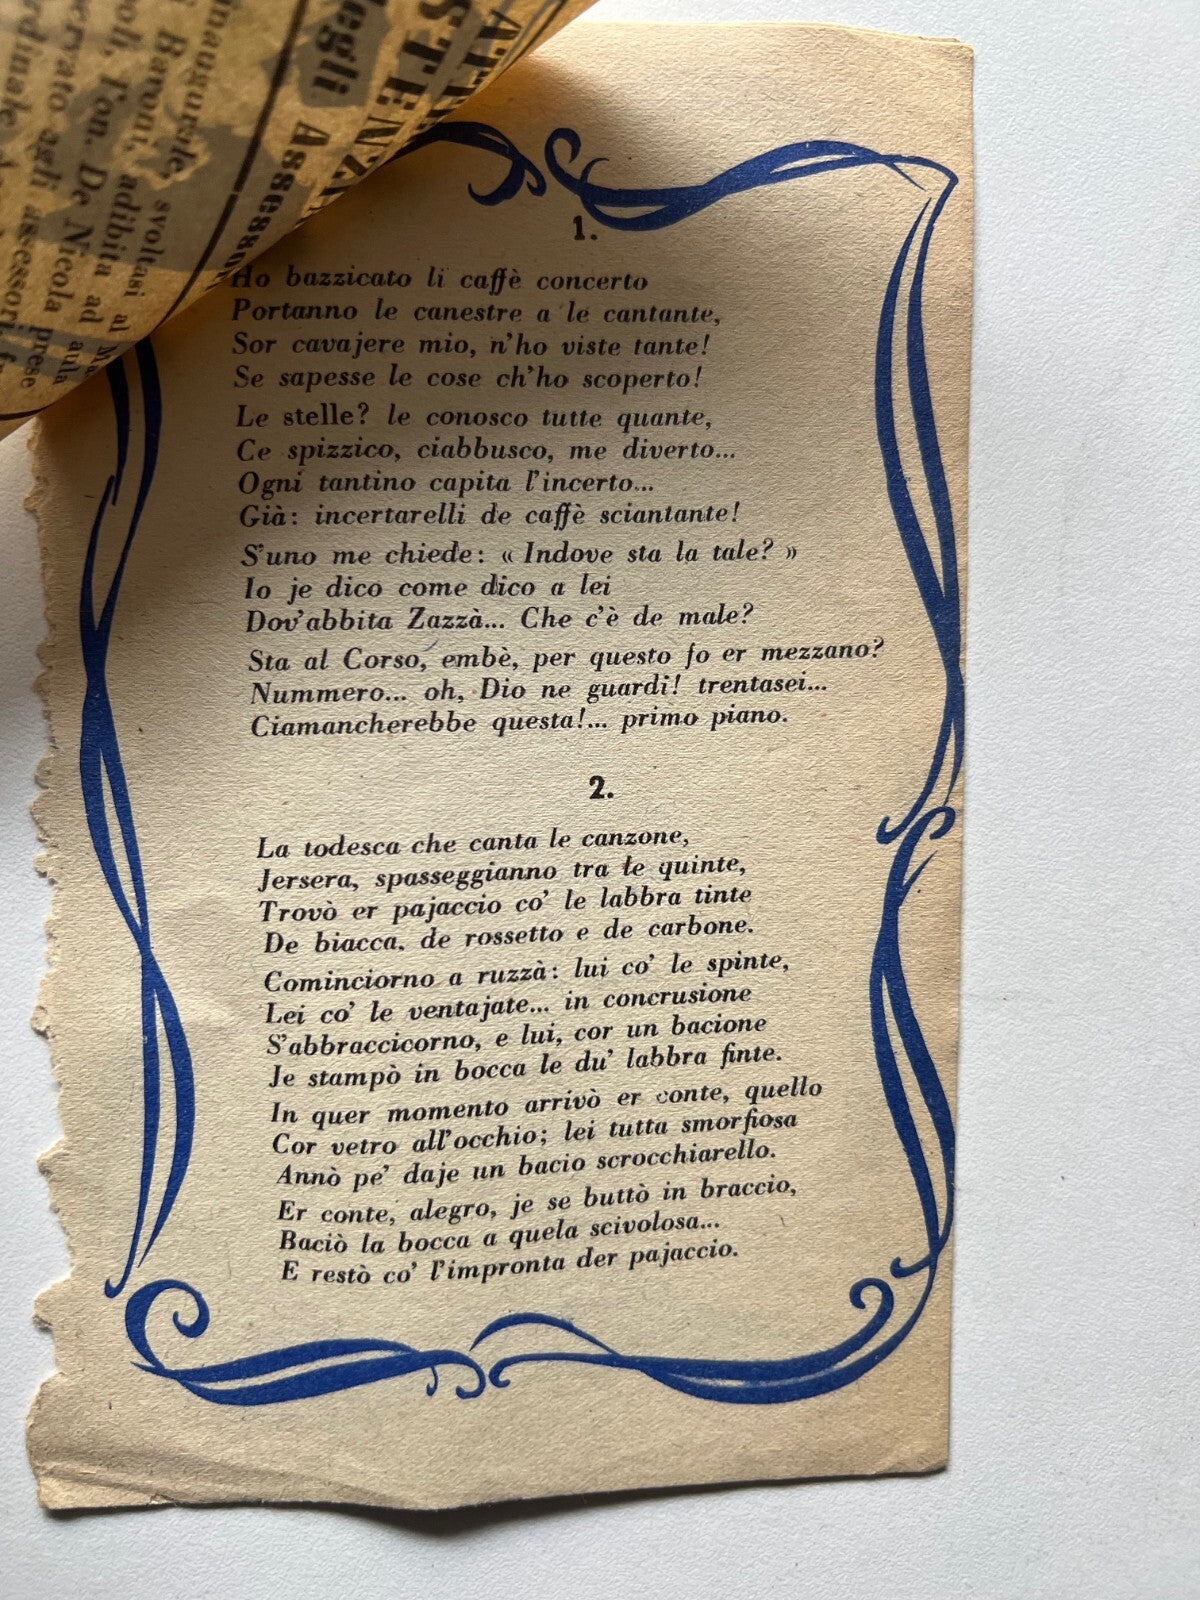 STENZ
degli Assesso
inaugurale, svoltasi al
Baroni, adibita ad aula
l'on. De Nicola prese
agli assessori
1.
Ho bazzicato li caffè concerto
Portanno le canestre a le cantante,
Sor cavajere mio, n'ho viste tante!
Se sapesse le cose ch'ho scoperto!
Le stelle? le conosco tutte quante,
Ce spizzico, ciabbusco, me diverto...
Ogni tantino capita l'incerto...
Già: incertarelli de caffè sciantante!
S'uno me chiede: « Indove sta la tale? »
Io je dico come dico a lei
Dov'abbita Zazzà... Che c'è de male?
Sta al Corso, embè, per questo fo er mezzano?
Nummero... oh, Dio ne guardi! trentasei...
Ciamancherebbe questa!... primo piano.
2.
La todesca che canta le canzone,
Jersera, spasseggianno tra le quinte,
Trovò er pajaccio co' le labbra tinte
De biacca, de rossetto e de carbone.
Cominciorno a ruzzà: lui co' le spinte,
Lei co' le ventajate... in concrusione
S'abbraccicorno, e lui, cor un bacione
Je stampò in bocca le du' labbra finte.
In quer momento arrivò er conte, quello
Cor vetro all'occhio; lei tutta smorfiosa
Annò pe' daje un bacio scrocchiarello.
Er conte, alegro, je se buttò in braccio,
Baciò la bocca a quela scivolosa...
E restò co' l'impronta der pajaccio.